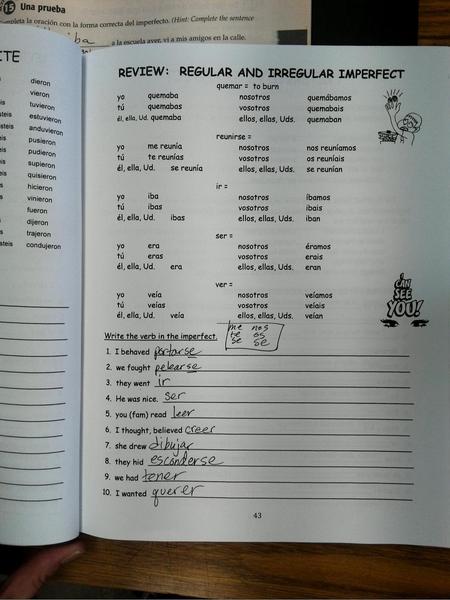 15 Una prueba
mpleta la oración con la forma correcta del imperfecto. (Hint: Complete the sentence
iba a la escuela ayer, vi a mis amigos en la calle.
TE
dieron
vieron
tuvieron
estuvieron
anduvieron
pusieron
pudieron
supieron
quisieron
hicieron
vinieron
fueron
dijeron
trajeron
steis condujeron
REVIEW: REGULAR AND IRREGULAR IMPERFECT
quemar = to burn
yo quemaba nosotros quemábamos
tú quemabas vosotros quemabais
él, ella, Ud. quemaba ellos, ellas, Uds. quemaban
reunirse =
yo me reunía nosotros nos reuníamos
tú te reunías vosotros os reuníais
él, ella, Ud. se reunía ellos, ellas, Uds. se reunían
ir =
yo iba nosotros íbamos
tú ibas vosotros ibais
él, ella, Ud. ibas ellos, ellas, Uds. iban
ser =
yo era nosotros éramos
tú eras vosotros erais
él, ella, Ud. era ellos, ellas, Uds. eran
ver =
yo veía nosotros veíamos
tú veías vosotros veíais
él, ella, Ud. veía ellos, ellas, Uds. veían
I CAN
SEE
YOU!
me nos
te os
se se
Write the verb in the imperfect.
1. I behaved portarse
2. we fought pelearse
3. they went ir
4. He was nice. ser
5. you (fam) read leer
6. I thought, believed creer
7. she drew dibujar
8. they hid esconderse
9. we had tener
10. I wanted querer
43